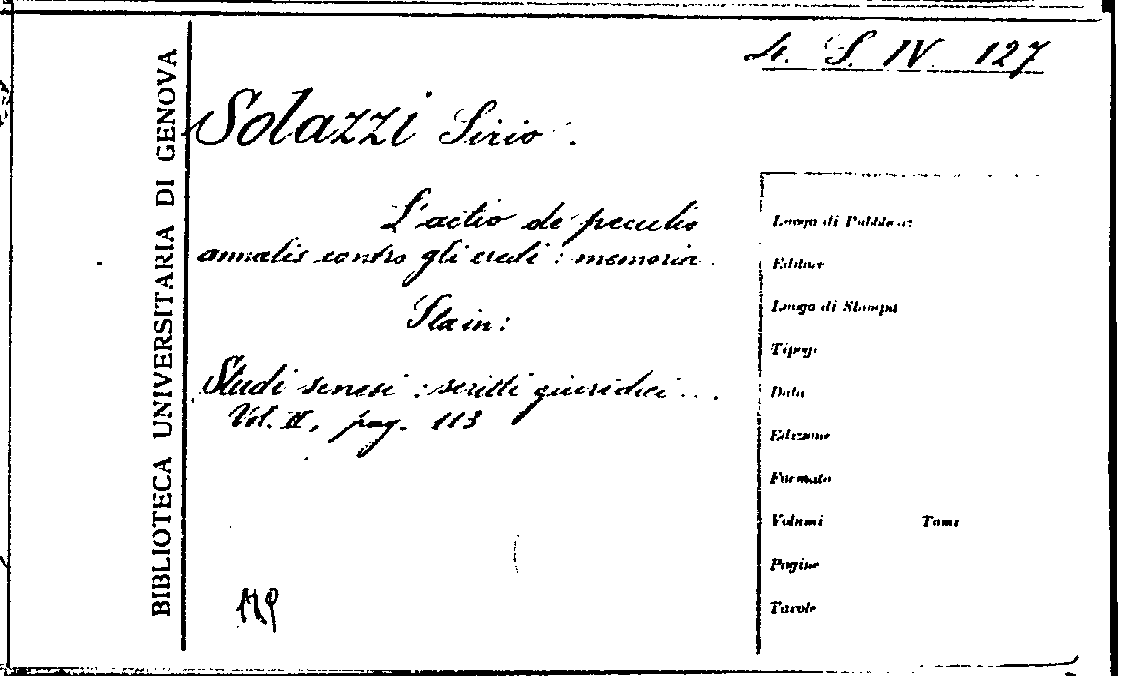 4. S. IV. 127
BIBLIOTECA UNIVERSITARIA DI GENOVA
Solazzi Sirio.
L'actio de peculio
annalis contro gli eredi : memoria.
Sta in:
Studi senesi : scritti giuridici...
Vol. II, pag. 113
Luogo di Pubblicaz
Editore
Luogo di Stampa
Tipogr
Data
Edizione
Formato
Volumi Tomi
Pagine
Tavole